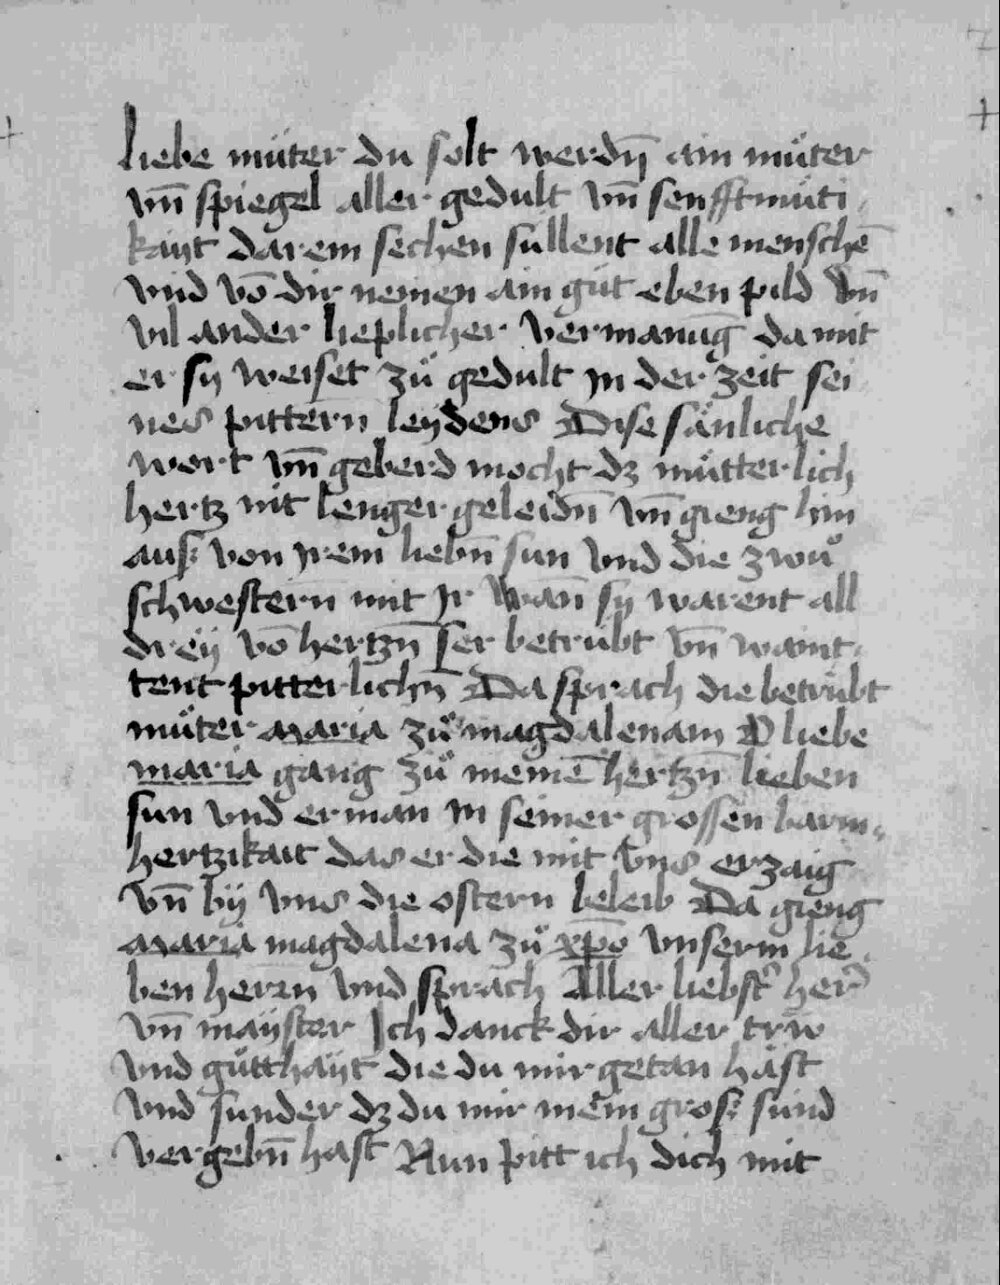 liebe muͤter du solt werdn̄ ain muͤter
vnn̄ spiegel aller gedult vnn̄ senfftmuͤti
kaÿt dar em sechen süllent alle menschē
vnd vō dir nemen ain guͤt eben pild vnn̄
vil ander lieplicher vermanūg da mit
er sÿ weiset zuͦ gedult in der zeit sei
nes pittern̄ leÿdens Dise sänliche
wort vnn̄ geberd mocht dz muͤtterlich
hertz nit lenger geleidn̄ vnn̄ gieng hin
aus von irem liebn̄ sun vnd die zwuͦ
schwestern̄ mit ir wān sÿ warent all
dreÿ vō hertzn̄ ser betrübt vn̄ waint
tent pitterlichn̄ Da sprach die betrübt
muͤter maria zuͦ magdalenam O liebe
maria gang zuͦ meinē hertzn̄ lieben
sun vnd erman in seiner grossen barm
hertzikait das er die mit vns erzaig
vn̄ bÿ vns die ostern beleib Da gieng
maria magdalena zuͦ xp̄o vnserm lie
ben herrn̄ vnd sprach Aller liebst' her'
vn̄ maÿster Ich danck dir aller trw
vnd guͤtthaÿt die du mir getan hast
vnd sunder dz du mir mein gros sünd
vergebn̄ hast Nun pitt ich dich mit